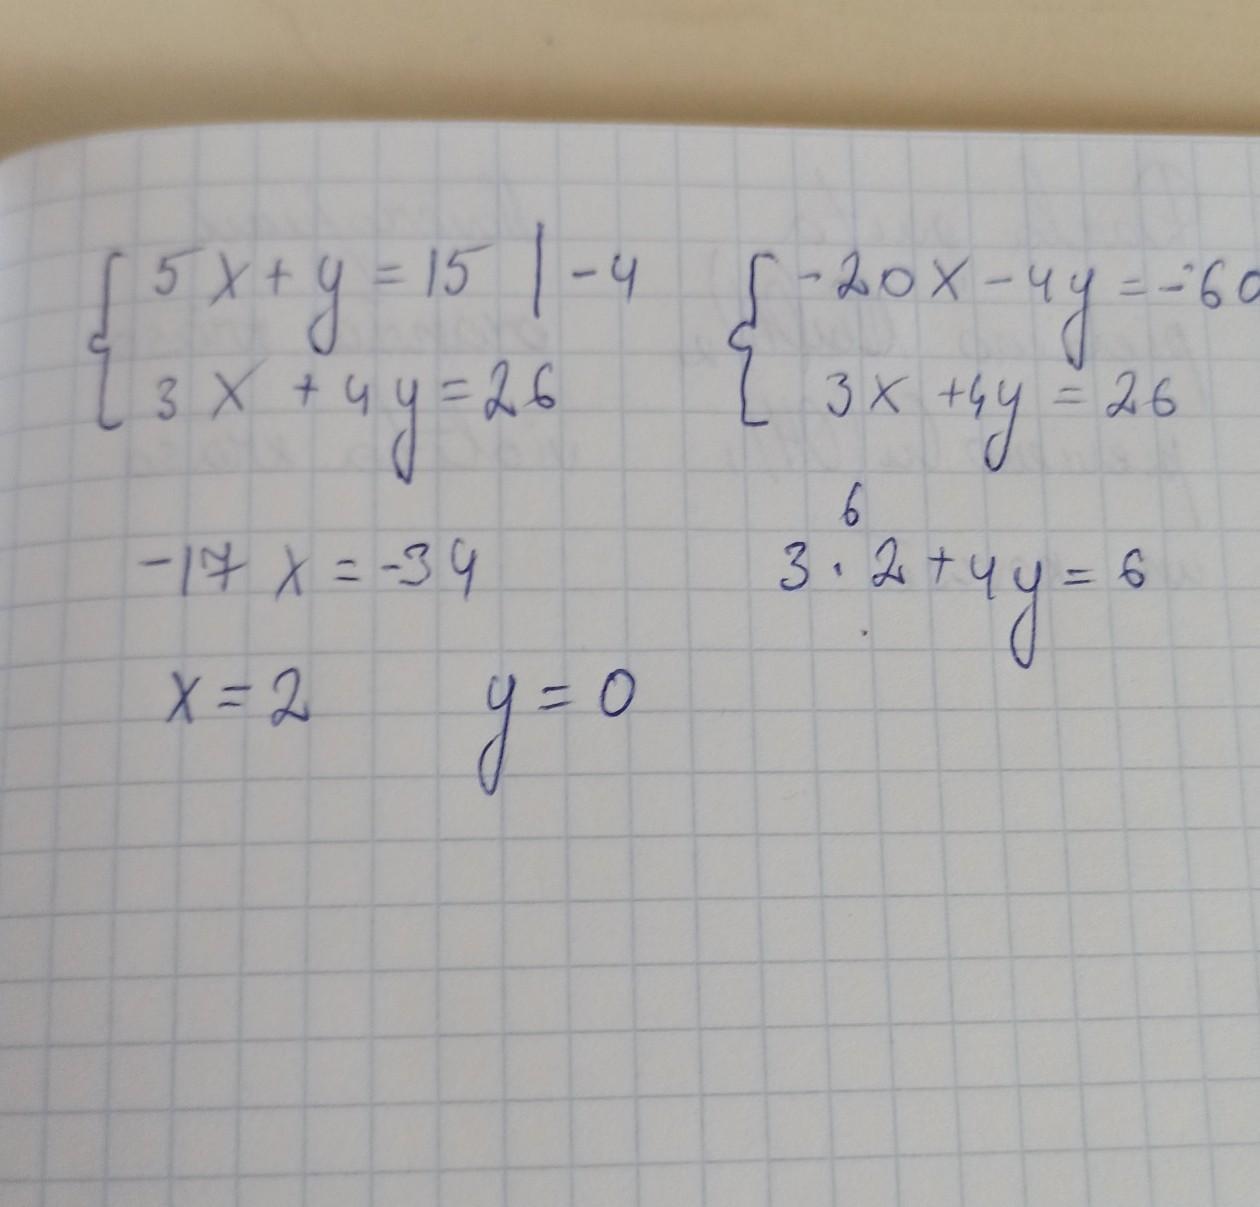 5x+y=15 | -4
3x +4y=26
-20x-4y=-60
3x +4y = 26
-17x=-34
6
3·2+4y=6
x=2 y=0